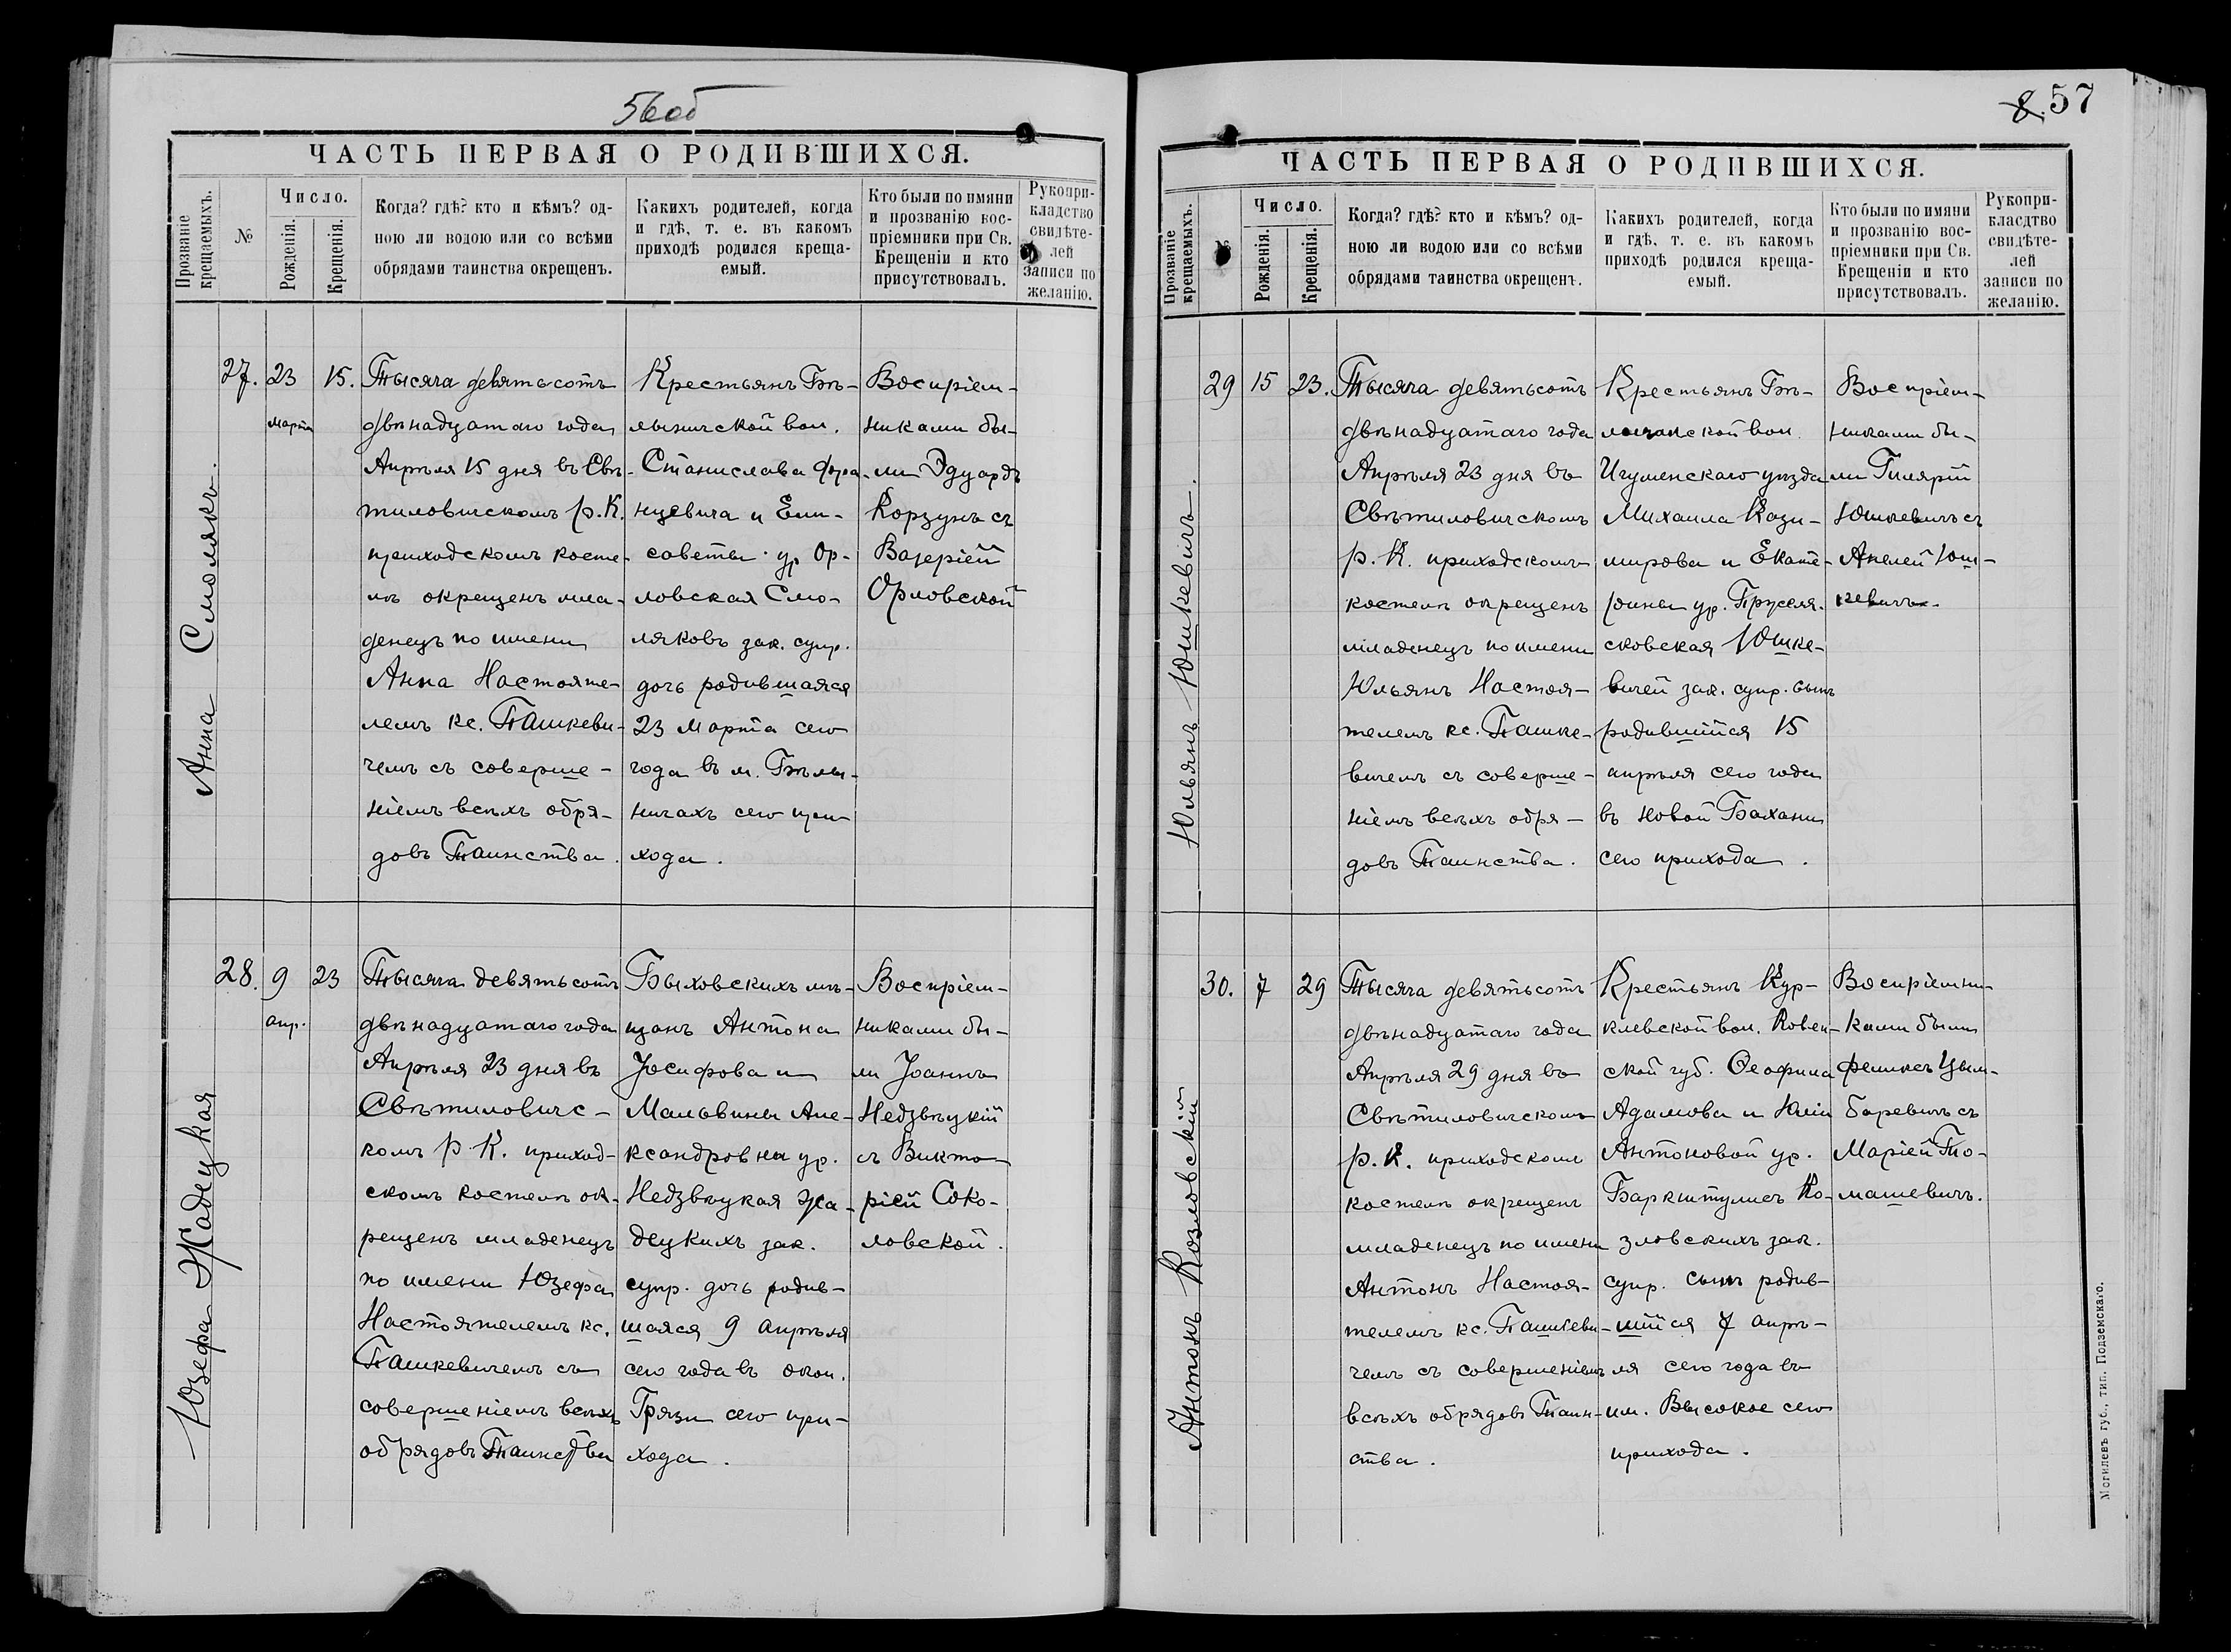 56об
ЧАСТЬ ПЕРВАЯ О РОДИВШИХСЯ.
Прозваніе крещаемыхъ.
№
Число.
Рожденія.
Крещенія.
Когда? гдѣ? кто и кѣмъ? од-
ною ли водою или со всѣми
обрядами таинства окрещенъ.
Какихъ родителей, когда
и гдѣ, т. е. въ какомъ
приходѣ родился креща-
емый.
Кто были по имяни
и прозванію вос-
пріемники при Св.
Крещеніи и кто
присутствовалъ.
Рукопри-
кладство
свидѣте-
лей
записи по
желанію.
Анна Смолякъ.
27.
23
марта
15.
Тысяча девятьсотъ
двѣнадцатаго года
Апрѣля 15 дня въ Свѣ-
тиловичскомъ р. К.
приходскомъ косте-
лѣ окрещенъ мла-
денецъ по имени
Анна Настояте-
лемъ кс. Пашкеви-
чемъ съ соверше-
ніемъ всѣхъ обря-
довъ Таинства.
Крестьянъ Бѣ-
лыничской вол.
Станислава Фра-
нцевича и Ели-
саветы ур Ор-
ловская Смо-
ляковъ зак. супр.
дочь родившаяся
23 марта сего
года въ м. Бѣлы-
ничахъ сего при
хода.
Воспріем-
никами бы-
ли Эдуардъ
Корзунъ съ
Валеріей
Орловской
Юзефа Жадецкая
28.
9
апр.
23
Тысяча девятьсотъ
двѣнадцатаго года
Апрѣля 23 дня въ
Свѣтиловичс-
комъ р К. приход-
скомъ костелѣ ок-
рещенъ младенецъ
по имени Юзефа
Настоятелемъ кс.
Пашкевичемъ съ
совершеніемъ всѣхъ
обрядовъ Таинства
Быховскихъ мѣ-
щанъ Антона
Іосифова и
Мальвины Але-
ксандровна ур.
Недзвѣцкая Жа-
децкихъ зак.
супр. дочь родив-
шаяся 9 апрѣля
сего года въ окол.
Грязи сего при-
хода.
Воспріем-
никами бы-
ли Іоаннъ
Недзвѣцкій
съ Викто-
ріей Соко-
ловской.
8. 57
ЧАСТЬ ПЕРВАЯ О РОДИВШИХСЯ.
Прозваніе крещаемыхъ.
№
Число.
Рожденія.
Крещенія.
Когда? гдѣ? кто и кѣмъ? од-
ною ли водою или со всѣми
обрядами таинства окрещенъ.
Какихъ родителей, когда
и гдѣ, т. е. въ какомъ
приходѣ родился креща-
емый.
Кто были по имяни
и прозванію вос-
пріемники при Св.
Крещеніи и кто
присутствовалъ.
Рукопри-
класдтво
свидѣте-
лей
записи по
желанію.
Юльянъ Юшкевичъ.
29
15
23.
Тысяча девятьсотъ
двѣнадцатаго года
Апрѣля 23 дня въ
Свѣтиловичскомъ
р. К. приходскомъ
костелѣ окрещенъ
младенецъ по имени
Юльянъ Настоя-
телемъ кс. Пашке-
вичемъ съ соверше-
ніемъ всѣхъ обря-
довъ Таинства.
Крестьянъ Бѣ-
вол.
Игуменскаго уѣзда
Михаила Кази-
мирова и Екате-
рины ур.
сковская Юшке-
вичей зак. супр. сынъ
родившійся 15
апрѣля сего года
въ Новой Бахани
сего прихода.
Воспріем-
никами бы-
ли Гилярій
Юшкевичъ съ
Анелей Юш-
кевичъ.
Антонъ Козловскій
30.
7
29
Тысяча девятьсотъ
двѣнадцатаго года
Апрѣля 29 дня въ
Свѣтиловичскомъ
р. К. приходскомъ
костелѣ окрещенъ
младенецъ по имени
Антонъ Настоя-
телемъ кс. Пашкеви-
чемъ съ совершеніемъ
всѣхъ обрядовъ Таин-
ства.
Крестьянъ Кур-
клевской вол. Ковен-
ской губ. Ѳеофила
Адамова и Юліи
Антоновой ур.
Баркштулисъ Ко-
зловскихъ зак.
супр. сынъ родив-
шійся 7 апрѣ-
ля сего года въ
им. Высокое сего
прихода.
Воспріемни-
ками были
Феликсъ Цым-
баревичъ съ
Маріей То-
машевичъ.
Могилевъ губ., тип. Подземскаго.